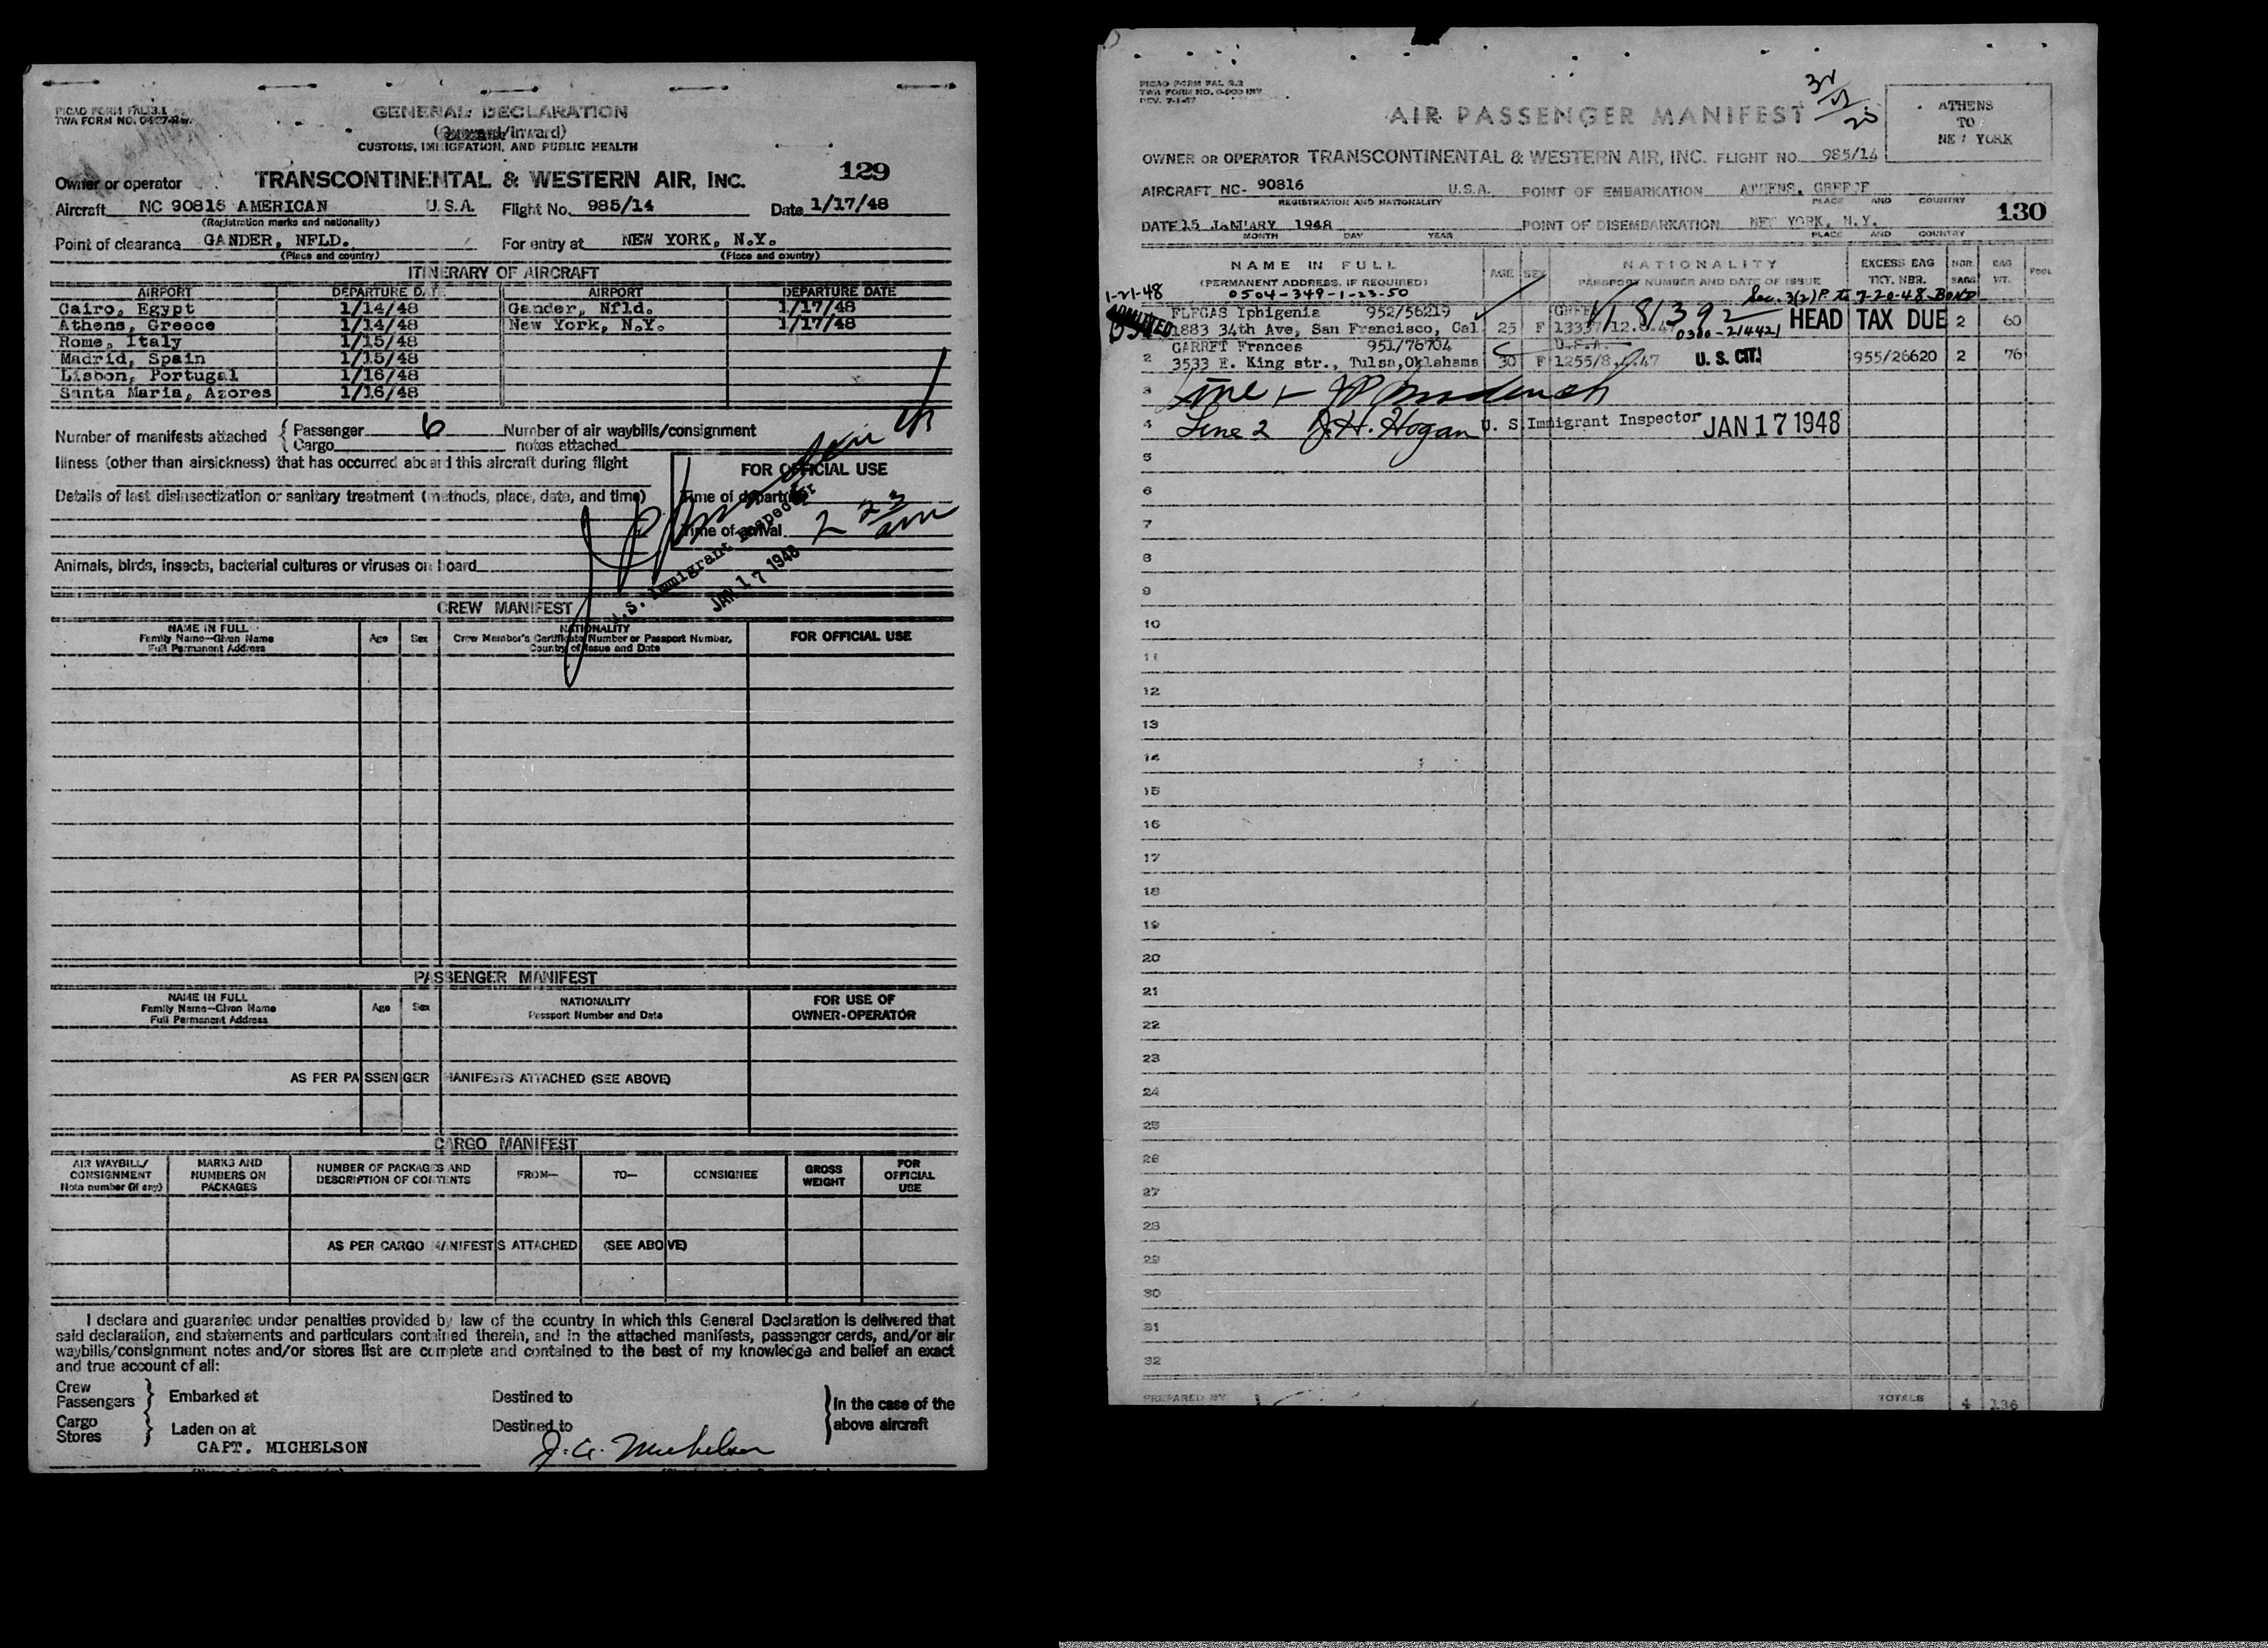 PICAO FORM FAL 3.1
TWA FORM NO.
GENERAL DECLARATION
(Outward/Inward)
CUSTOMS, IMMIGRATION, AND PUBLIC HEALTH
129
Owner or operator TRANSCONTINENTAL & WESTERN AIR, INC.
Aircraft NC 90816 AMERICAN U.S.A. Flight No. 985/14 Date 1/17/48
(Registration marks and nationality)
Point of clearance GANDER, NFLD. For entry at NEW YORK, N.Y.
(Place and country) (Place and country)
ITINERARY OF AIRCRAFT
AIRPORT DEPARTURE DATE AIRPORT DEPARTURE DATE
Cairo, Egypt 1/14/48 Gander, Nfld. 1/17/48
Athens, Greece 1/14/48 New York, N.Y. 1/17/48
Rome, Italy 1/15/48
Madrid, Spain 1/15/48
Lisbon, Portugal 1/16/48
Santa Maria, Azores 1/16/48
Number of manifests attached { Passenger 6 Number of air waybills/consignment
Cargo notes attached
Illness (other than airsickness) that has occurred aboard this aircraft during flight
FOR OFFICIAL USE
Details of last disinsectization or sanitary treatment (methods, place, date, and time)
Time of departure
Time of arrival 2 23 am
U.S. Immigrant Inspector
JAN 17 1948
Animals, birds, insects, bacterial cultures or viruses on board
CREW MANIFEST
NAME IN FULL
Family Name—Given Name
Full Permanent Address
Age Sex
NATIONALITY
Crew Member's Certificate Number or Passport Number,
Country of Issue and Date
FOR OFFICIAL USE
PASSENGER MANIFEST
NAME IN FULL
Family Name—Given Name
Full Permanent Address
Age Sex
NATIONALITY
Passport Number and Date
FOR USE OF
OWNER-OPERATOR
AS PER PASSENGER MANIFESTS ATTACHED (SEE ABOVE)
CARGO MANIFEST
AIR WAYBILL/
CONSIGNMENT
Note number (if any)
MARKS AND
NUMBERS ON
PACKAGES
NUMBER OF PACKAGES AND
DESCRIPTION OF CONTENTS
FROM— TO— CONSIGNEE
GROSS
WEIGHT
FOR
OFFICIAL
USE
AS PER CARGO MANIFESTS ATTACHED (SEE ABOVE)
I declare and guarantee under penalties provided by law of the country in which this General Declaration is delivered that
said declaration, and statements and particulars contained therein, and in the attached manifests, passenger cards, and/or air
waybills/consignment notes and/or stores list are complete and contained to the best of my knowledge and belief an exact
and true account of all:
Crew
Passengers } Embarked at Destined to
Cargo
Stores } Laden on at Destined to
} In the case of the
above aircraft
CAPT. MICHELSON J.A. Michelson
PICAO FORM FAL 3.2
TWA FORM NO.
REV. 7-1-47
AIR PASSENGER MANIFEST
ATHENS
TO
NEW YORK
OWNER OR OPERATOR TRANSCONTINENTAL & WESTERN AIR, INC. FLIGHT NO. 985/14
AIRCRAFT NC- 90816 U.S.A. POINT OF EMBARKATION ATHENS, GREECE
REGISTRATION AND NATIONALITY PLACE AND COUNTRY
130
DATE 15 JANUARY 1948 POINT OF DISEMBARKATION NEW YORK, N.Y.
MONTH DAY YEAR PLACE AND COUNTRY
NAME IN FULL
(PERMANENT ADDRESS, IF REQUIRED)
AGE SEX
NATIONALITY
PASSPORT NUMBER AND DATE OF ISSUE
EXCESS BAG
TKT. NBR.
NBR.
BAGS
BAG
WT.
1-21-48
ADMITTED
0504-349-1-23-50
Sec. 3(2) P. to 7-20-48 Bond
FLEGAS Iphigenia 952/56219 GREEK V 181392
1883 34th Ave, San Francisco, Cal. 25 F 0300-214421 HEAD TAX DUE 2 60
GARRET Frances 951/76704 U.S.A.
2 3533 E. King str., Tulsa,Oklahama 30 F U. S. CIT. 955/26620 2 76
3 Line 1
4 Line 2 J.H. Hogan U. S. Immigrant Inspector JAN 17 1948
5
6
7
8
9
10
11
12
13
14
15
16
17
18
19
20
21
22
23
24
25
26
27
28
29
30
31
32
PREPARED BY TOTALS 4 136